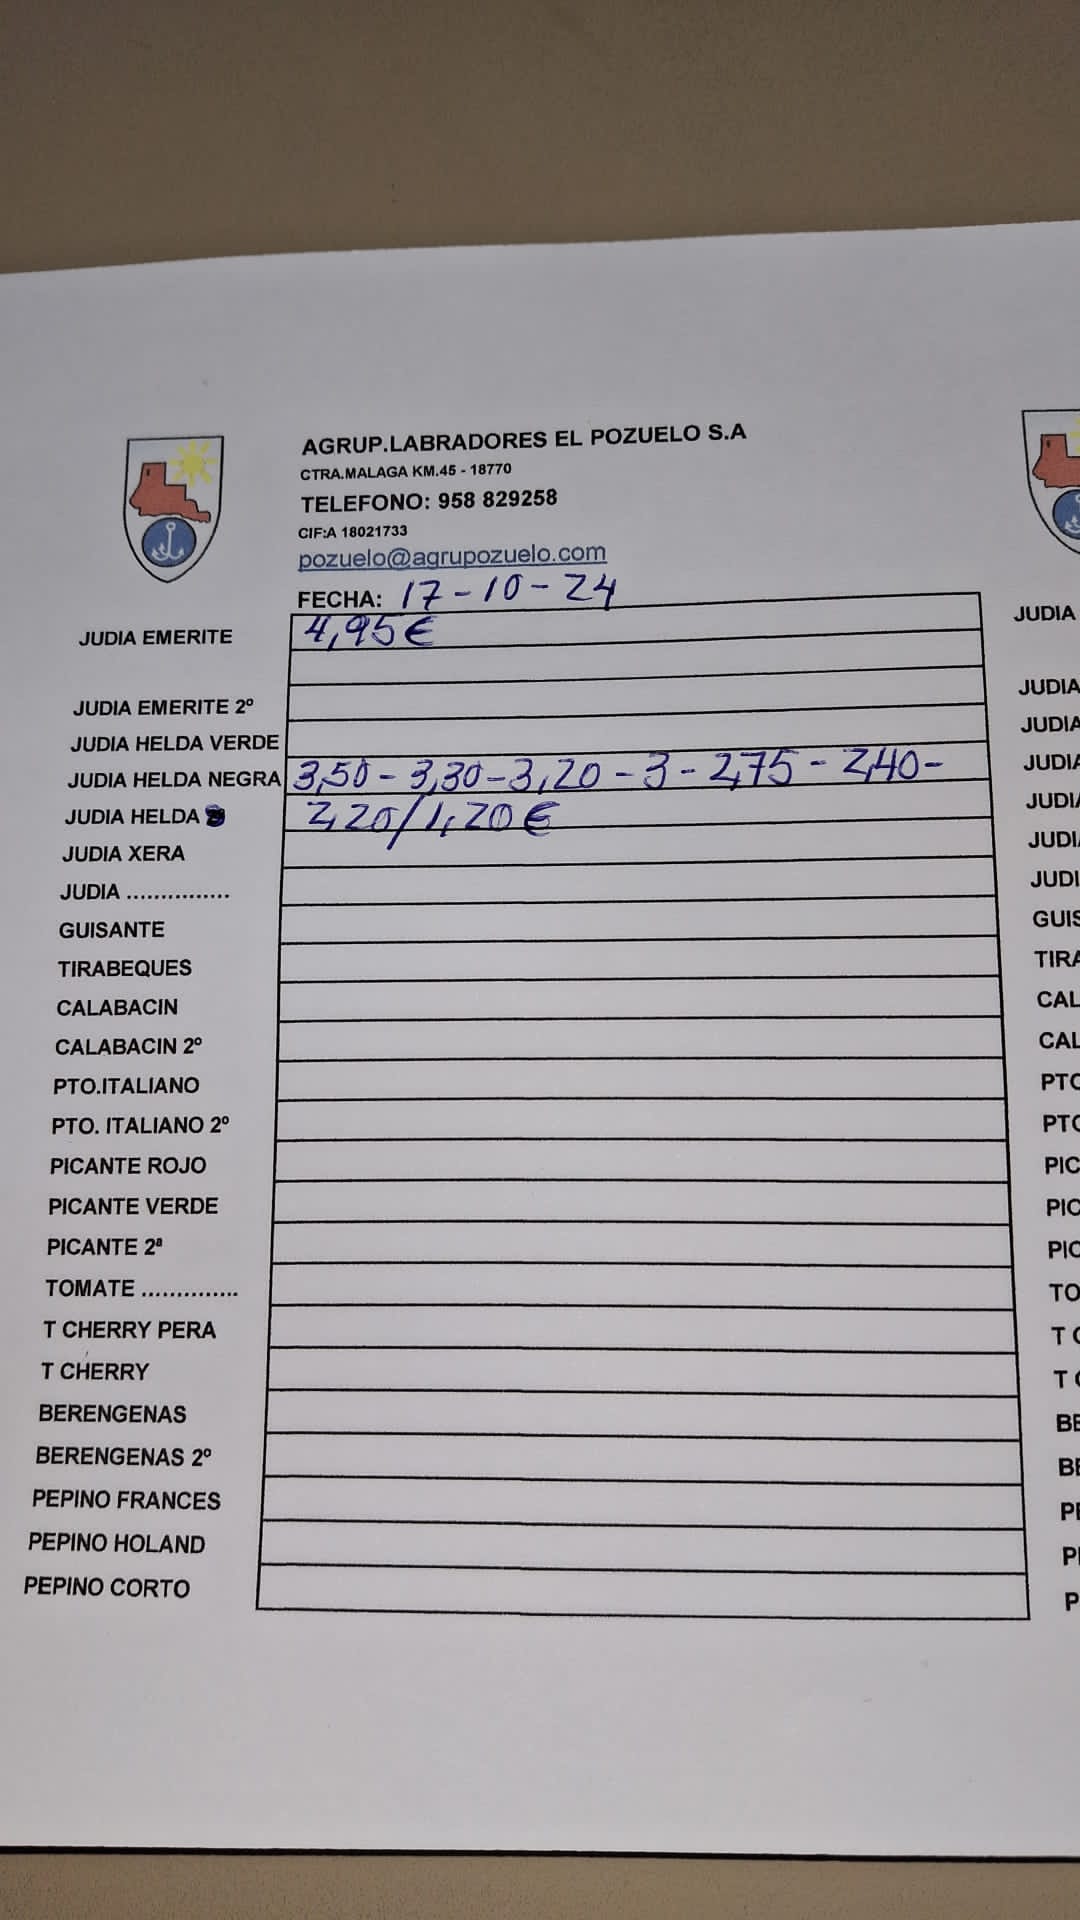 AGRUP.LABRADORES EL POZUELO S.A
CTRA.MALAGA KM.45 - 18770
TELEFONO: 958 829258
CIF:A 18021733
pozuelo@agrupozuelo.com
FECHA: 17-10-24
JUDIA EMERITE 4,95€
JUDIA EMERITE 2º
JUDIA HELDA VERDE
JUDIA HELDA NEGRA 3,50-3,30-3,20-3-2,75-2,40-
JUDIA HELDA 2,20/1,20€
JUDIA XERA
JUDIA ...............
GUISANTE
TIRABEQUES
CALABACIN
CALABACIN 2º
PTO.ITALIANO
PTO. ITALIANO 2º
PICANTE ROJO
PICANTE VERDE
PICANTE 2ª
TOMATE ..............
T CHERRY PERA
T CHERRY
BERENGENAS
BERENGENAS 2º
PEPINO FRANCES
PEPINO HOLAND
PEPINO CORTO
JUDIA
JUDIA
JUDIA
JUDIA
JUDI
JUDI
JUDI
GUIS
TIRA
CAL
CAL
PTO
PTO
PIC
PIC
PIC
TO
T C
T C
BE
BE
PE
P
P